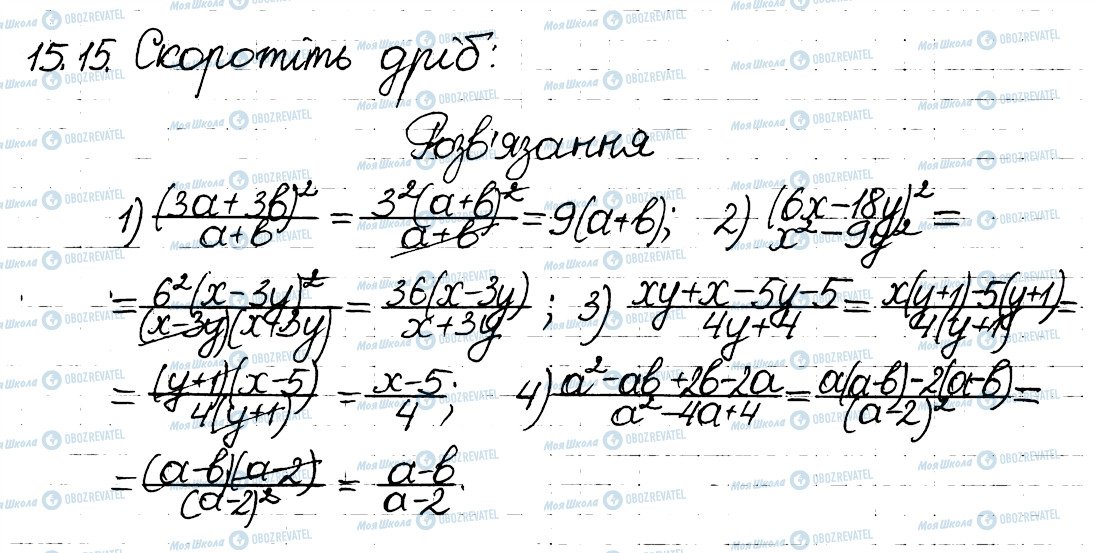 15.15. Скоротіть дріб:
Розв'язання
1) (3a+3b)²/(a+b) = 3²(a+b)²/(a+b) = 9(a+b); 2) (6x-18y)²/(x²-9y²) =
= 6²(x-3y)²/((x-3y)(x+3y)) = 36(x-3y)/(x+3y); 3) (xy+x-5y-5)/(4y+4) = (x(y+1)-5(y+1))/(4(y+1)) =
= (y+1)(x-5)/(4(y+1)) = (x-5)/4; 4) (a²-ab+2b-2a)/(a²-4a+4) = (a(a-b)-2(a-b))/(a-2)² =
= (a-b)(a-2)/(a-2)² = (a-b)/(a-2).
Моя Школа OBOZREVATEL